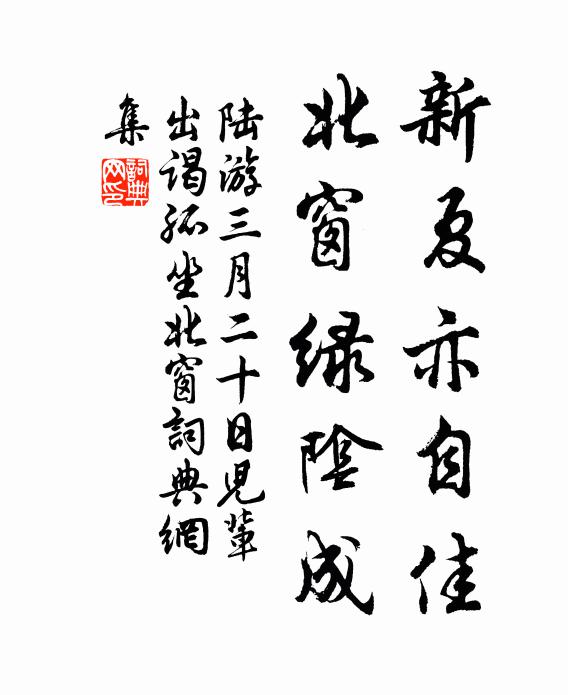 新夏亦自佳
北窗緑陰成
陆游三月二十日児輩
出謁孤坐北窗詞典網
集
詞典
网印